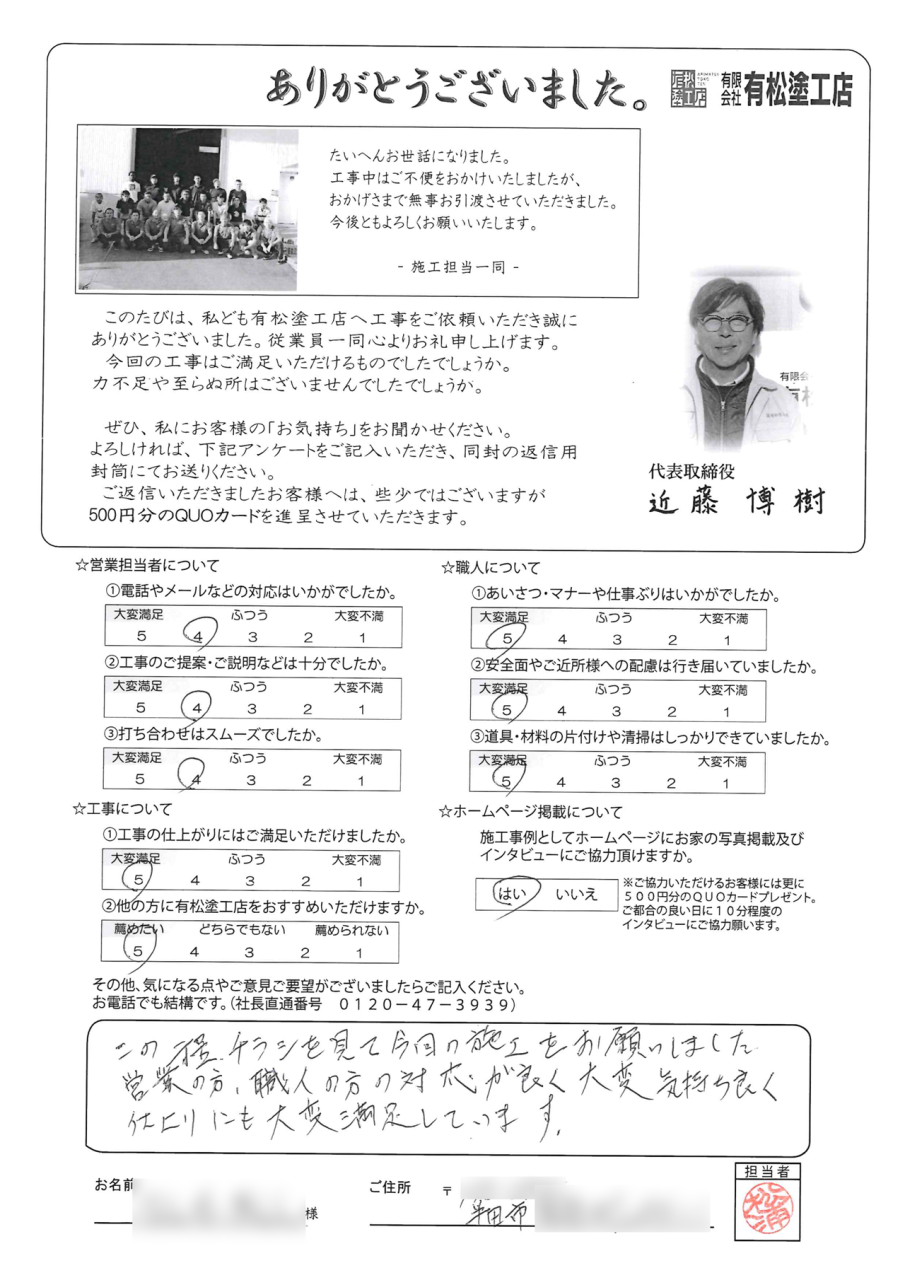 ありがとうございました。
有限会社 有松塗工店
たいへんお世話になりました。
工事中はご不便をおかけいたしましたが、
おかげさまで無事お引渡させていただきました。
今後ともよろしくお願いいたします。
- 施工担当一同 -
このたびは、私ども有松塗工店へ工事をご依頼いただき誠に
ありがとうございました。従業員一同心よりお礼申し上げます。
今回の工事はご満足いただけるものでしたでしょうか。
力不足や至らぬ所はございませんでしたでしょうか。
ぜひ、私にお客様の「お気持ち」をお聞かせください。
よろしければ、下記アンケートをご記入いただき、同封の返信用
封筒にてお送りください。
ご返信いただきましたお客様へは、些少ではございますが
500円分のQUOカードを進呈させていただきます。
代表取締役
近藤 博樹
☆営業担当者について
①電話やメールなどの対応はいかがでしたか。
大変満足 ふつう 大変不満
5 4 3 2 1
②工事のご提案・ご説明などは十分でしたか。
大変満足 ふつう 大変不満
5 4 3 2 1
③打ち合わせはスムーズでしたか。
大変満足 ふつう 大変不満
5 4 3 2 1
☆工事について
①工事の仕上がりにはご満足いただけましたか。
大変満足 ふつう 大変不満
5 4 3 2 1
②他の方に有松塗工店をおすすめいただけますか。
薦めたい どちらでもない 薦められない
5 4 3 2 1
☆職人について
①あいさつ・マナーや仕事ぶりはいかがでしたか。
大変満足 ふつう 大変不満
5 4 3 2 1
②安全面やご近所様への配慮は行き届いていましたか。
大変満足 ふつう 大変不満
5 4 3 2 1
③道具・材料の片付けや清掃はしっかりできていましたか。
大変満足 ふつう 大変不満
5 4 3 2 1
☆ホームページ掲載について
施工事例としてホームページにお家の写真掲載及び
インタビューにご協力頂けますか。
はい いいえ
※ご協力いただけるお客様には更に
５００円分のQUOカードプレゼント。
ご都合の良い日に１０分程度の
インタビューにご協力願います。
その他、気になる点やご意見ご要望がございましたらご記入ください。
お電話でも結構です。（社長直通番号 ０１２０－４７－３９３９）
この チラシを見て今回の施工をお願いしました
営業の方、職人の方の対応が良く大変気持ち良く
仕上りにも大変満足しています。
お名前 様
ご住所 〒
半田市
担当者